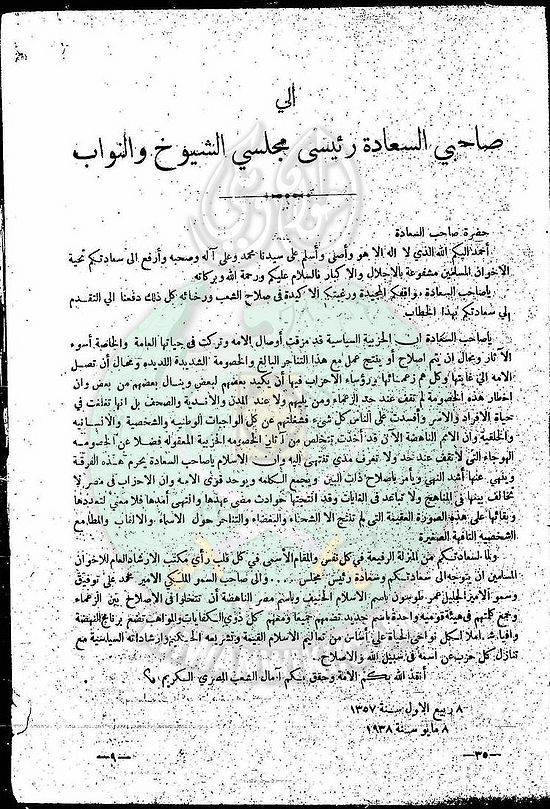 الي
صاحبي السعادة رئيسى مجلسي الشيوخ والنواب
حضرة صاحب السعادة
أحمد اليكم الله الذي لا اله الا هو وأصلى وأسلم على سيدنا محمد وعلى آله وصحبه وأرفع الى سعادتكم تحية
الاخوان المسلمين مشفوعة بالاجلال والاكبار فالسلام عليكم ورحمة الله وبركاته.
ياصاحب السعادة. مواقفكم المجيدة ورغبتكم الاكيدة فى صلاح الشعب ورخائه كل ذلك دفعنا الى التقدم
إلي سعادتكم بهذا الخطاب.
ياصاحب السعادة إن الحزبية السياسية قد مزقت أوصال الامه وتركت فى حياتها العامة والخاصة أسوء
الآثار ومحال ان يتم اصلاح أو ينتج عمل مع هذا التناحر البالغ والخصومة الشديدة اللديده ومحال أن تصـل
الامه الى غايتها وكل هم زعمـائها ورؤساء الاحزاب فيها أن يكيد بعضهم لبعض وينـال بعضهم من بعض وان
اخطار هذه الخصومة لم تقف عند حد الزعماء ومن يليهم ولا عند المدن والأندية والصحف بل انها تغلغلت فى
حياة الافراد والاسر وأفسدت على الناس كل شيء فشغلتهم عن كل الواجبات الوطنيه والشخصية والانسانيه
والخلقية وان الامم الناهضة الآن قد أخذت تتخلص من آثار الخصومه الحزبية المعقوله فضلا عن الخصومـه
الهوجاء التى لا تقف عند حد ولا تعرف مدى تنتهى اليه وان الاسلام ياصاحب السعادة يحرم هـذه الفرقـة
وينهي عنها أشد النهي ويأمر باصلاح ذات البين ويجمع الكلمه ويوحد قوى الامه وان الاحزاب فى مصر لا
تخالف بينها فى المناهج ولا تباعد فى الغايات وقد انتجتها حوادث مضى عهدها وانتهى أمدها فلا معنى لتعددها
وبقائها على هذه الصورة العقيمة التى لم تنتج الا الشحناء والبغضاء والتناحر حول الاسماء والالقاب والمطامع
الشخصية التافهة الصغيرة
ولما لسعادتكم من المنزلة الرفيعة فى كل نفس والمقام الأسمى فى كل قلب رأي مكتب الارشاد العام للاخوان
المسلمين ان يتوجه الى سعادتكم وسعادة رئيس مجلس ..... والى صاحب السمو الملكي الامير محمد علي توفيق
وسمو الامير الجليل عمر طوسون باسم الاسلام الحنيف وباسم مصر الناهضة أن تتدخلوا فى الاصلاح بين الزعماء
وجمع كلمتهم فى هيئة قومية واحدة باسم جديد تضمهم جميعا ومعهم كل ذوي الكفايات والمواهب تضع برنامج النهضة
شاملا لكل نواحي الحياة على أساس من تعاليم الاسلام القيمة وتشريعه الحكيم وارشاداته السامية مع
تنازل كل حزب عن اسمه فى سبيل الله والاصلاح.
أنقذ الله بكم الامة وحقق بكم آمال الشعب المصري الكريم
٨ ربيع الاول سنة ١٣٥٧
٨ مايو سنة ١٩٣٨
—٣٥—
—٩—